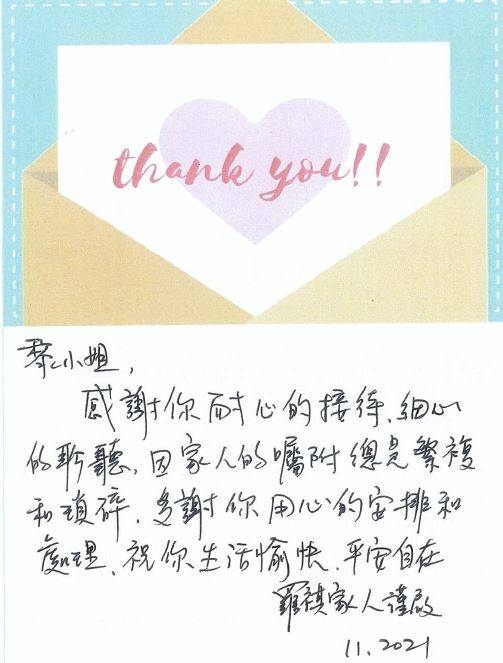 thank you!!
黎小姐,
感謝你耐心的接待、細心
的聆聽、因家人的囑附總是繁複
和瑣碎、多謝你用心的安排和
處理、祝你生活愉快、平安自在
羅 家人謹啟
11.2021